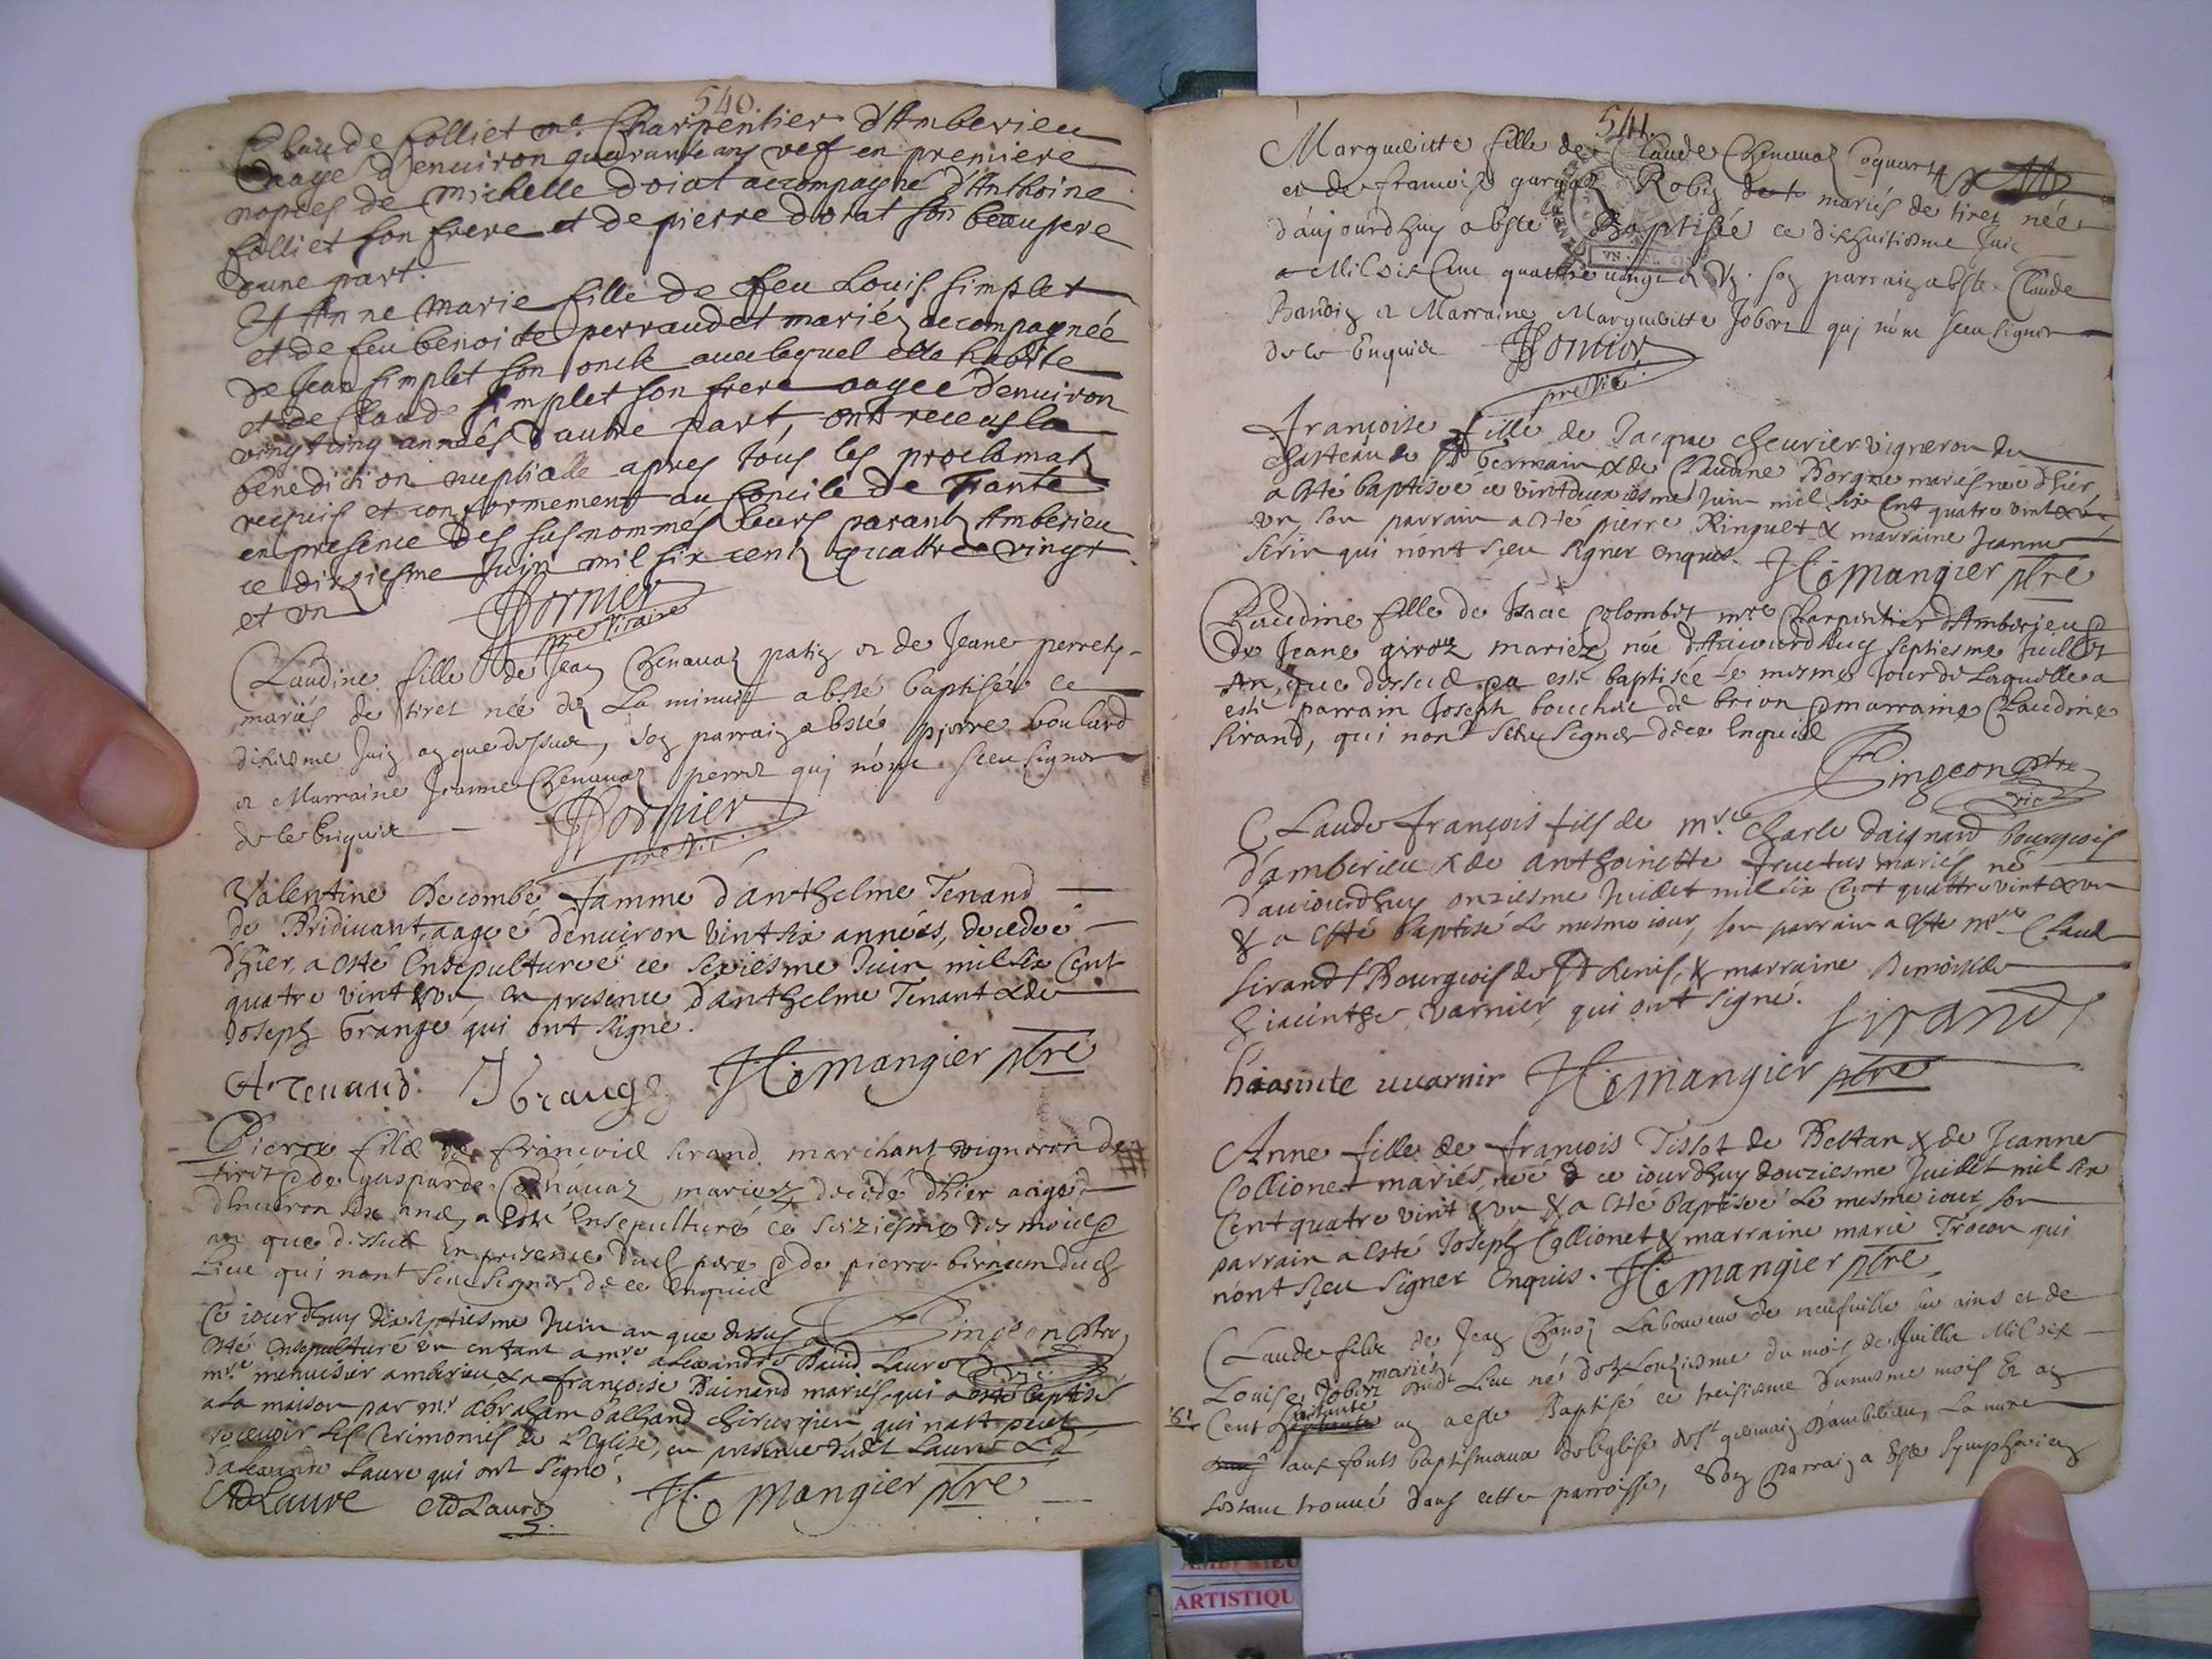 540.
Claude Colliet me. Charpentier d'Amberieu
aagé d'enuiron quarante ans vef en premiere
nopces de Michelle doiat accompagné d'Anthoine
Colliet son frere et de pierre doiat son beaupere
d'une part.
Et Anne Marie fille de feu Louis simplet
et de feu benoite perraudet mariéz accompagnée
de Jean simplet son oncle auec lequel elle habite
et de Claude simplet son frere aagee d'enuiron
vingt cinq années d'autre part, ont receus la
benediction nuptialle apres tous les proclamatz
requis et conformement au Concile de Trante
en presence des susnommés leurs parantz Amberieu
ce dixziesme Juin mil six centz quattre vingt
et un
Dornier
pre vicaire
Claudine fille de Jean Chenauaz patiz et de Jeane perret
mariés de tiret née dez La minuit a esté baptisée ce
dixisme Juin an que dessus, son parrain a esté pierre boulard
et Marraine Jeanne Chenauaz perret qui n'ont sceu signer
de ce Enquis
Dornier
pre vic.
Valentine Decombe famme d'anthelme Tenand
de Bridiuant, aageé denuiron vint six anneés, decedeé
d'hier, a esté Ensepultureé ce sexiesme Juin mil six Cent
quatre vint & un en presence d'anthelme Tenant & de
Joseph Grange qui ont signé.
A. Tenand. J Grange H. mangier ptre
Pierre filz de françois sirand marchant vigneron de
tiret & de gasparde Chenauaz mariez decedé d'hier aagé
d'enuiron six ans, a esté Ensepulturé ce seiziesme des mois &
an que dessus En presence dud. pere & de pierre dud.
Lieu qui n'ont sceu signer de ce enquis
Ce iourdhuy dix septiesme Juin an que dessus a
Pingeon ptre
esté ensepulturé un enfant a mre alexandre Dauid Laure
mre menuisier amberieu & a françoise Bainand mariés, qui a esté baptisé
a la maison par mr abraham chirurgien, qui n'a peut
receuoir les Cerimonies de l'Eglise, en presence dudt Laure & d
d'alexandre Laure qui ont signé.
ADLaure ADLaure H. Mangier ptre
541.
Margueitte fille de Claude Chenauaz Coquart
et de francoise Robin mariés de tiret née
d'aujourd'huy a este Baptisée ce dixhuitisme Juin
Mil Six Cent quattre vingt et vn. son parrain a este Claude
Baudin et Marraine Margueitte Jobert qui n'ont sceu signer
de ce Enquis Dornier
pre vic.
françoise fille de Jacque cheurier vigneron du
chasteau de St germain & de Claudine Borgne mariés née d'hier
a esté baptiseé ce vint deuxiesme Juin mil six Cent quatre vint &
vn, son parrain a esté pierre Ringuet & marraine Jeanne
Serin qui n'ont sceu signer enquis. H. Mangier ptre
Claudine fille de Isaac Colombet mre Charpentier d'Amberieu &
de Jeane giroz mariez, née d'Auiourdhuy septiesme Juillet
An, que dessus est baptisée Le mesme Jour de Laquelle a
esté parrain Joseph bouchie de brion & marraine Claudine
Sirand, qui n'ont sceu signer de ce Enquis
Pingeon ptre
vic
Claude françois fils de mre Charle Daignard bourgeois
d'amberieu & de anthoinette fructus mariés né
d'auiourdhuy onziesme Juillet mil six Cent quattre vint & vn
& a esté baptisé le mesme iour, son parrain a esté mre Claud
Sirand Bourgeois de St denis, & marraine Demoiselle
hiacinthe varnier, qui ont signé. Sirand
hiasinte uuarnir H. Mangier ptre
Anne fille de francois Tissot de Bettan & de Jeanne
Collionet mariés, née ce iourdhuy douziesme Juillet mil six
Cent quatre vint & vn & a esté baptiseé le mesme iour, son
parrain a esté Joseph Collionet & marraine marie Trocon qui
n'ont sceu signer enquis. H. Mangier ptre
Claude filz de Jean Laboureur de neufuille sur ains et de
mariés
Louise Jobert dudt Lieu né dez Lonziesme du mois de Juillet Mil six
huitante
81 Cent septante un a este Baptisé ce treisiesme dumesme mois & an
aux fonts baptismaux de leglise de st germain d'ambérieu, La mere
sestant trouué dans cette parroisse, Son Parrain a Este Symphorien
AMBERIEU
ARTISTIQU